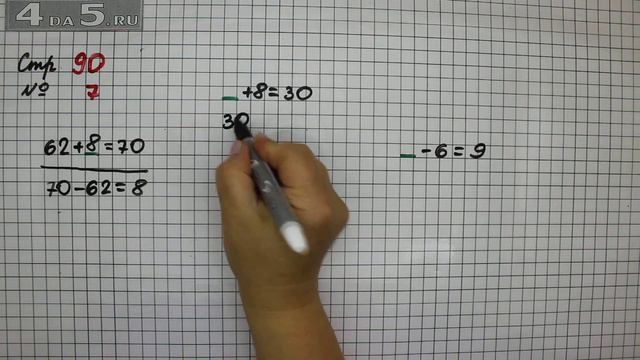 4 DA 5.RU
Стр 90
№ 7
62+8=70
70-62=8
_ +8=30
30
_ -6=9